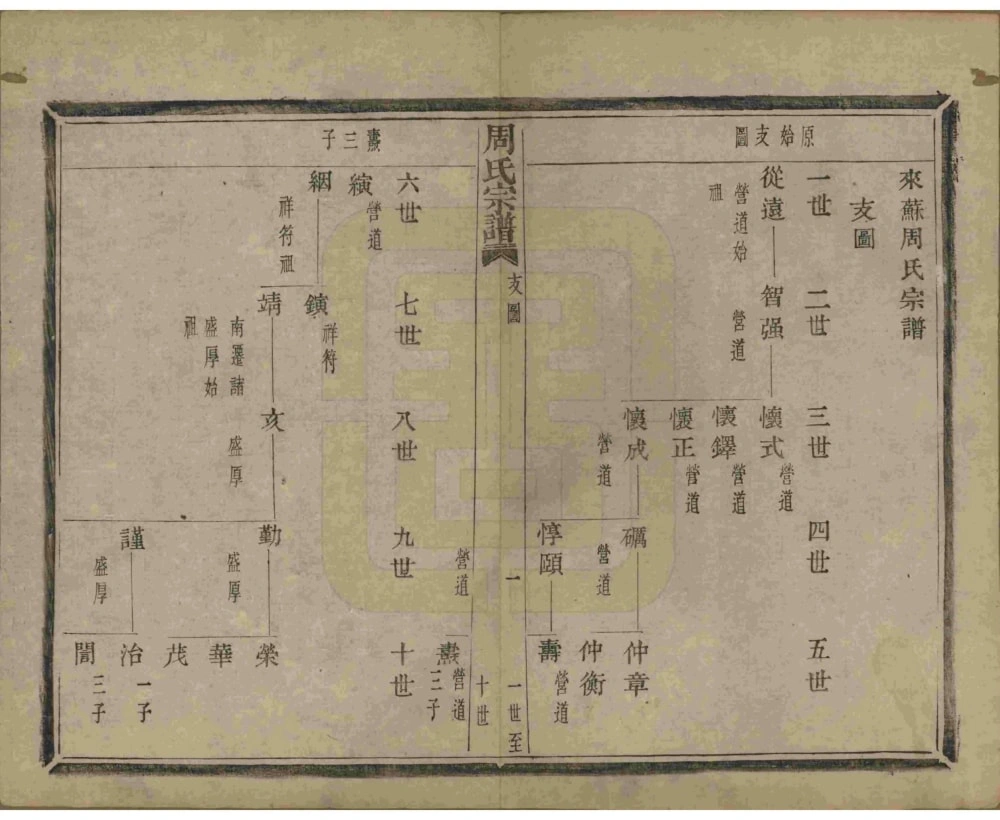 原始支圖
來蘇周氏宗譜
支圖
一世
二世
三世
四世
五世
從遠
營道始
祖
智强
營道
懷式
營道
懷鐸
營道
懷正
營道
懷成
營道
礪
營道
惇頤
營道
仲章
仲衡
壽
營道
燾
營道
二子
周氏宗譜
支圖
一
一世至
十世
燾三子
六世
七世
八世
九世
十世
繽
營道
絪
祥符祖
鐀
祥符
靖
南遷諸
盛厚始
祖
亥
盛厚
勤
盛厚
謹
盛厚
榮
華
茂
治
一子
誾
二子